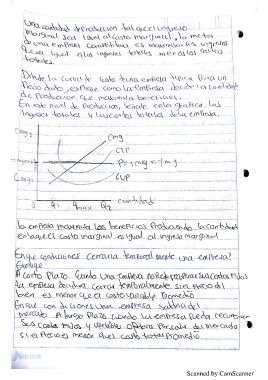 una cantidad de producción tal que el ingreso
marginal sea igual al costo marginal, la meta
de una empresa competitiva es maximizar los ingresos
que es igual a los ingresos totales menos los costos
totales.
Dibuje la curva de costo de una empresa típica para un
precio dado, explique como la empresa decide la cantidad
de producción que maximiza beneficios.
En este nivel de producción, señale en la grafica los
ingresos totales y los costos totales de la empresa.
Cmg
CTP
P=Img
CVP
0 Q1 Qmax Q2 cantidad
la empresa maximiza los beneficios produciendo la cantidad
en la que el costo marginal es igual al ingreso marginal
En que condiciones cerraria temporalmente una empresa?
A corto Plazo cuando una empresa no puede recuperar sus costos fijos
la empresa decidira cerrar temporalmente si el precio del
bien es menor que el costo variable Promedio
En que condiciones una empresa saldria del
mercado A largo Plazo cuando la empresa pueda recuperar
sus costos fijos y variables del mercado
si el Precio es menor que el costo total Promedio
Norma
Scanned by CamScanner